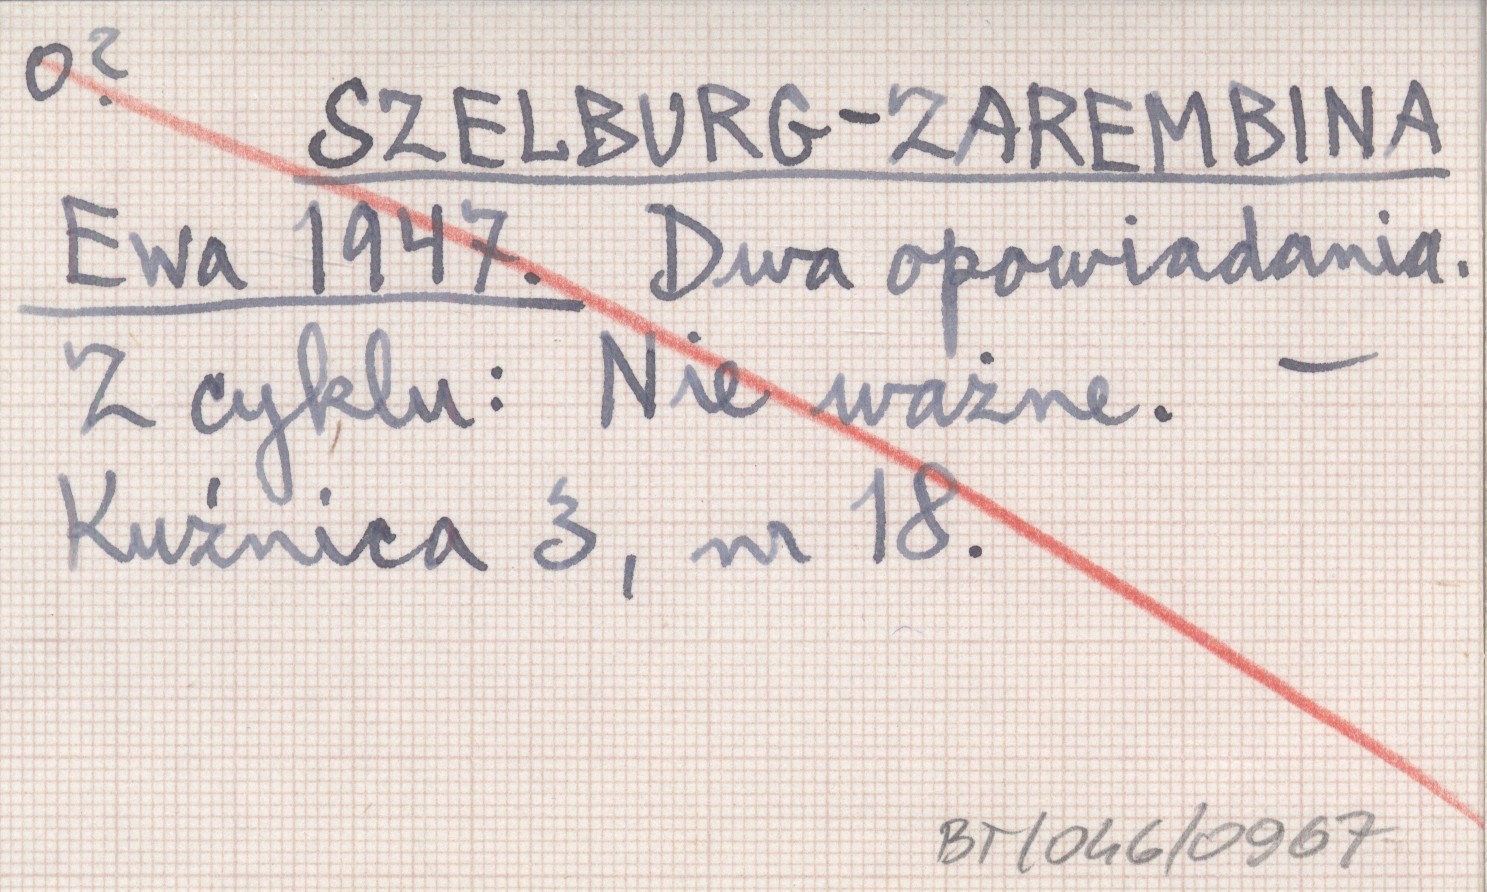 O?
SZELBURG-ZAREMBINA
Ewa 1947. Dwa opowiadania.
Z cyklu: Nie ważne. —
Kuźnica 3, nr 18.
BT/046/0967